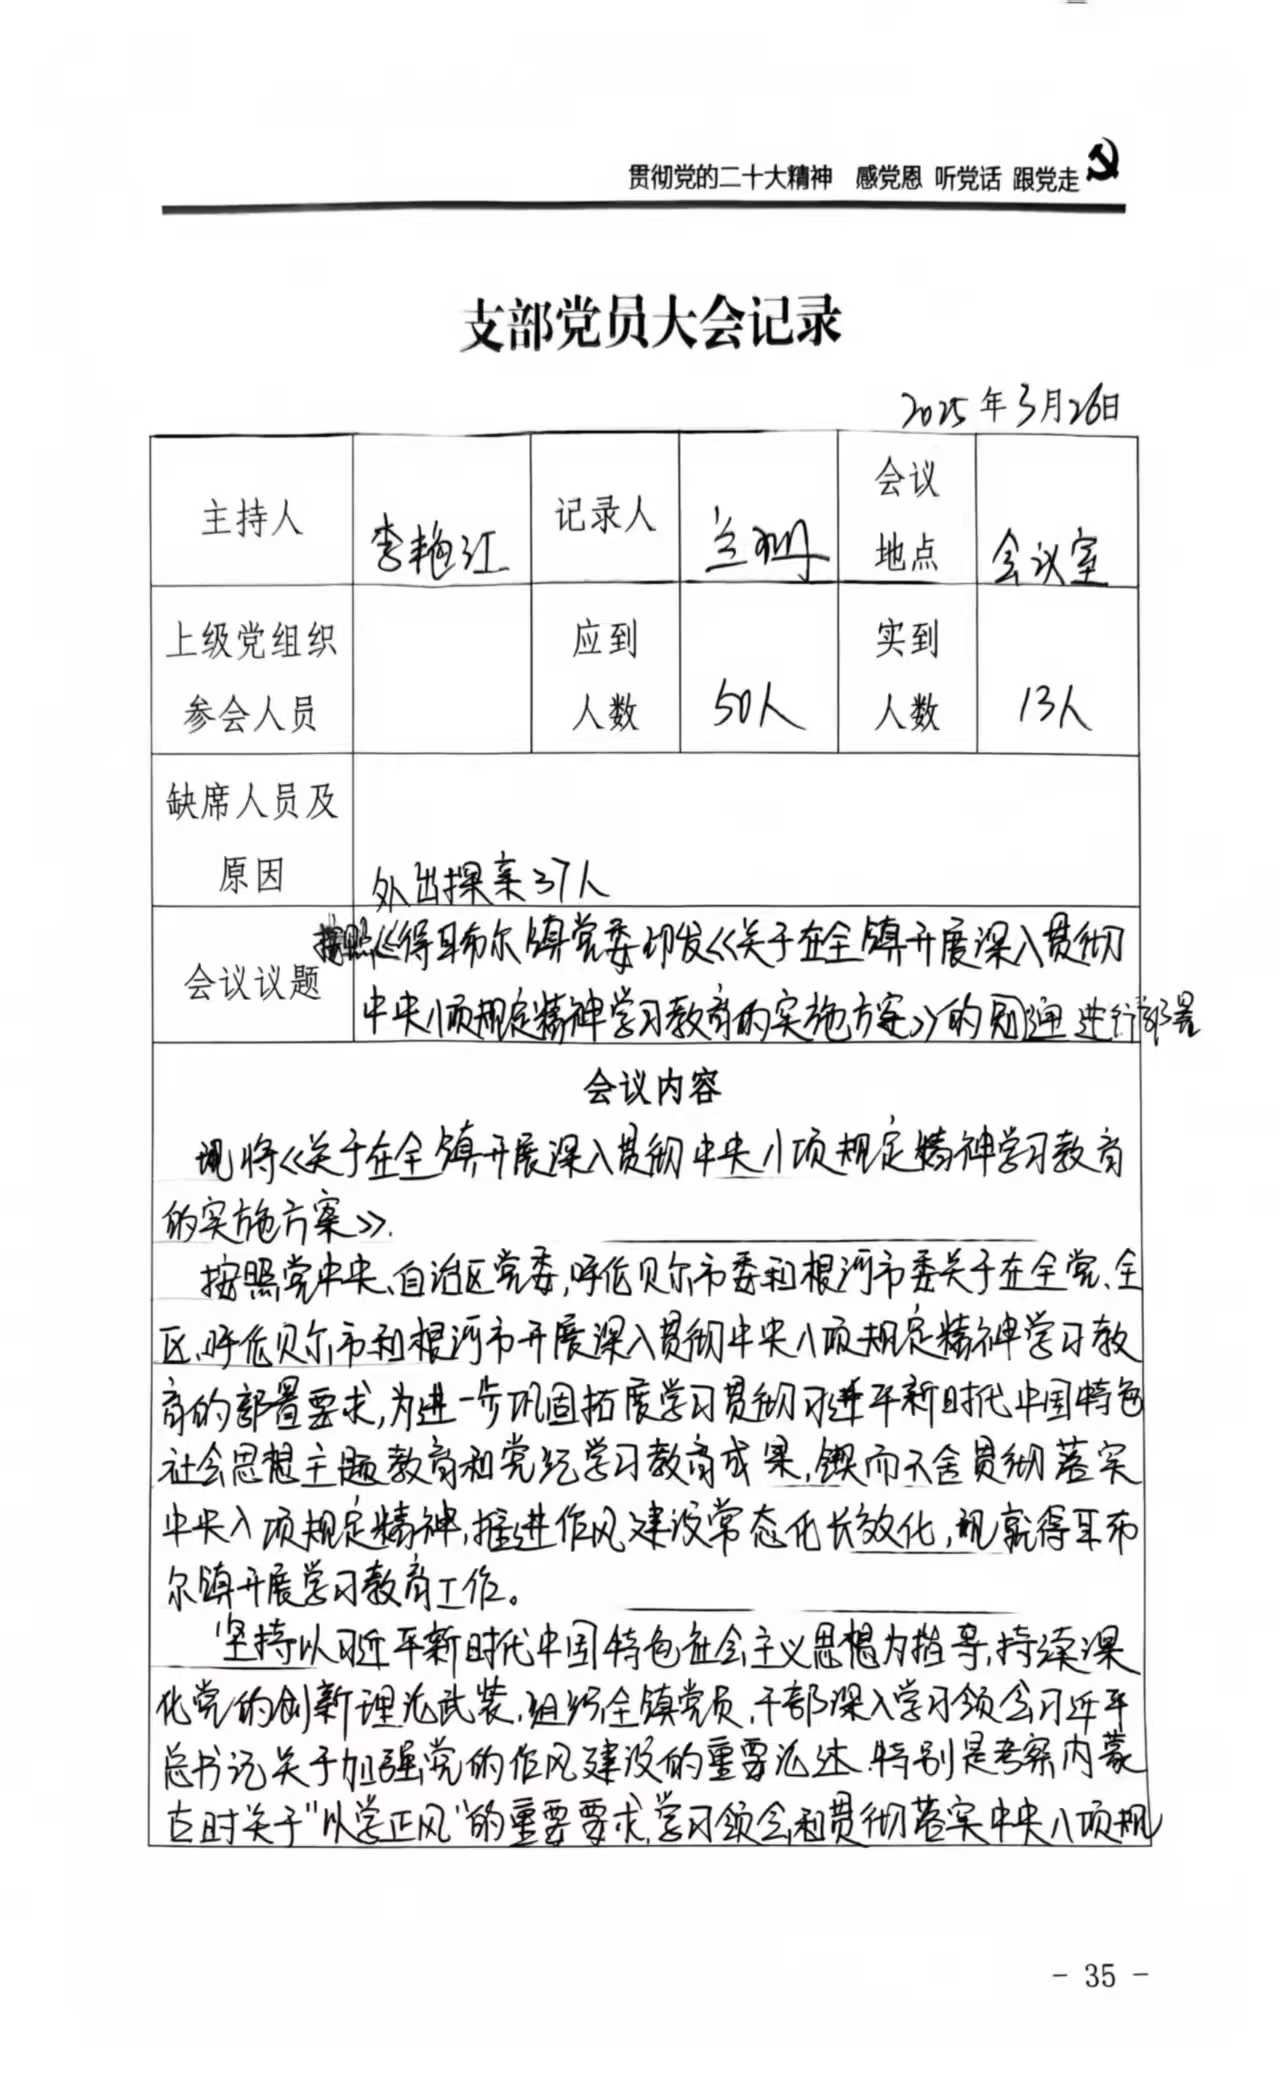 贯彻党的二十大精神 感党恩 听党话 跟党走
支部党员大会记录
2025年3月26日
主持人 李艳江 记录人 会议地点 会议室
上级党组织参会人员 应到人数 50人 实到人数 13人
缺席人员及原因 外出探亲37人
会议议题 按照《得耳布尔镇党委印发《关于在全镇开展深入贯彻
中央八项规定精神学习教育的实施方案》的 通 进行部署
会议内容
现将《关于在全镇开展深入贯彻中央八项规定精神学习教育
的实施方案》.
按照党中央、自治区党委,呼伦贝尔市委和根河市委关于在全党、全
区、呼伦贝尔市和根河市开展深入贯彻中央八项规定精神学习教
育的部署要求,为进一步巩固拓展学习贯彻习近平新时代中国特色
社会思想主题教育和党纪学习教育成果,锲而不舍贯彻落实
中央八项规定精神,推进作风建设常态化长效化,现就得耳布
尔镇开展学习教育工作。
坚持以习近平新时代中国特色社会主义思想为指导,持续深
化党的创新理论武装,组织全镇党员、干部深入学习领会习近平
总书记关于加强党的作风建设的重要论述.特别是考察内蒙
古时关于"以学正风"的重要要求,学习领会和贯彻落实中央八项规
- 35 -